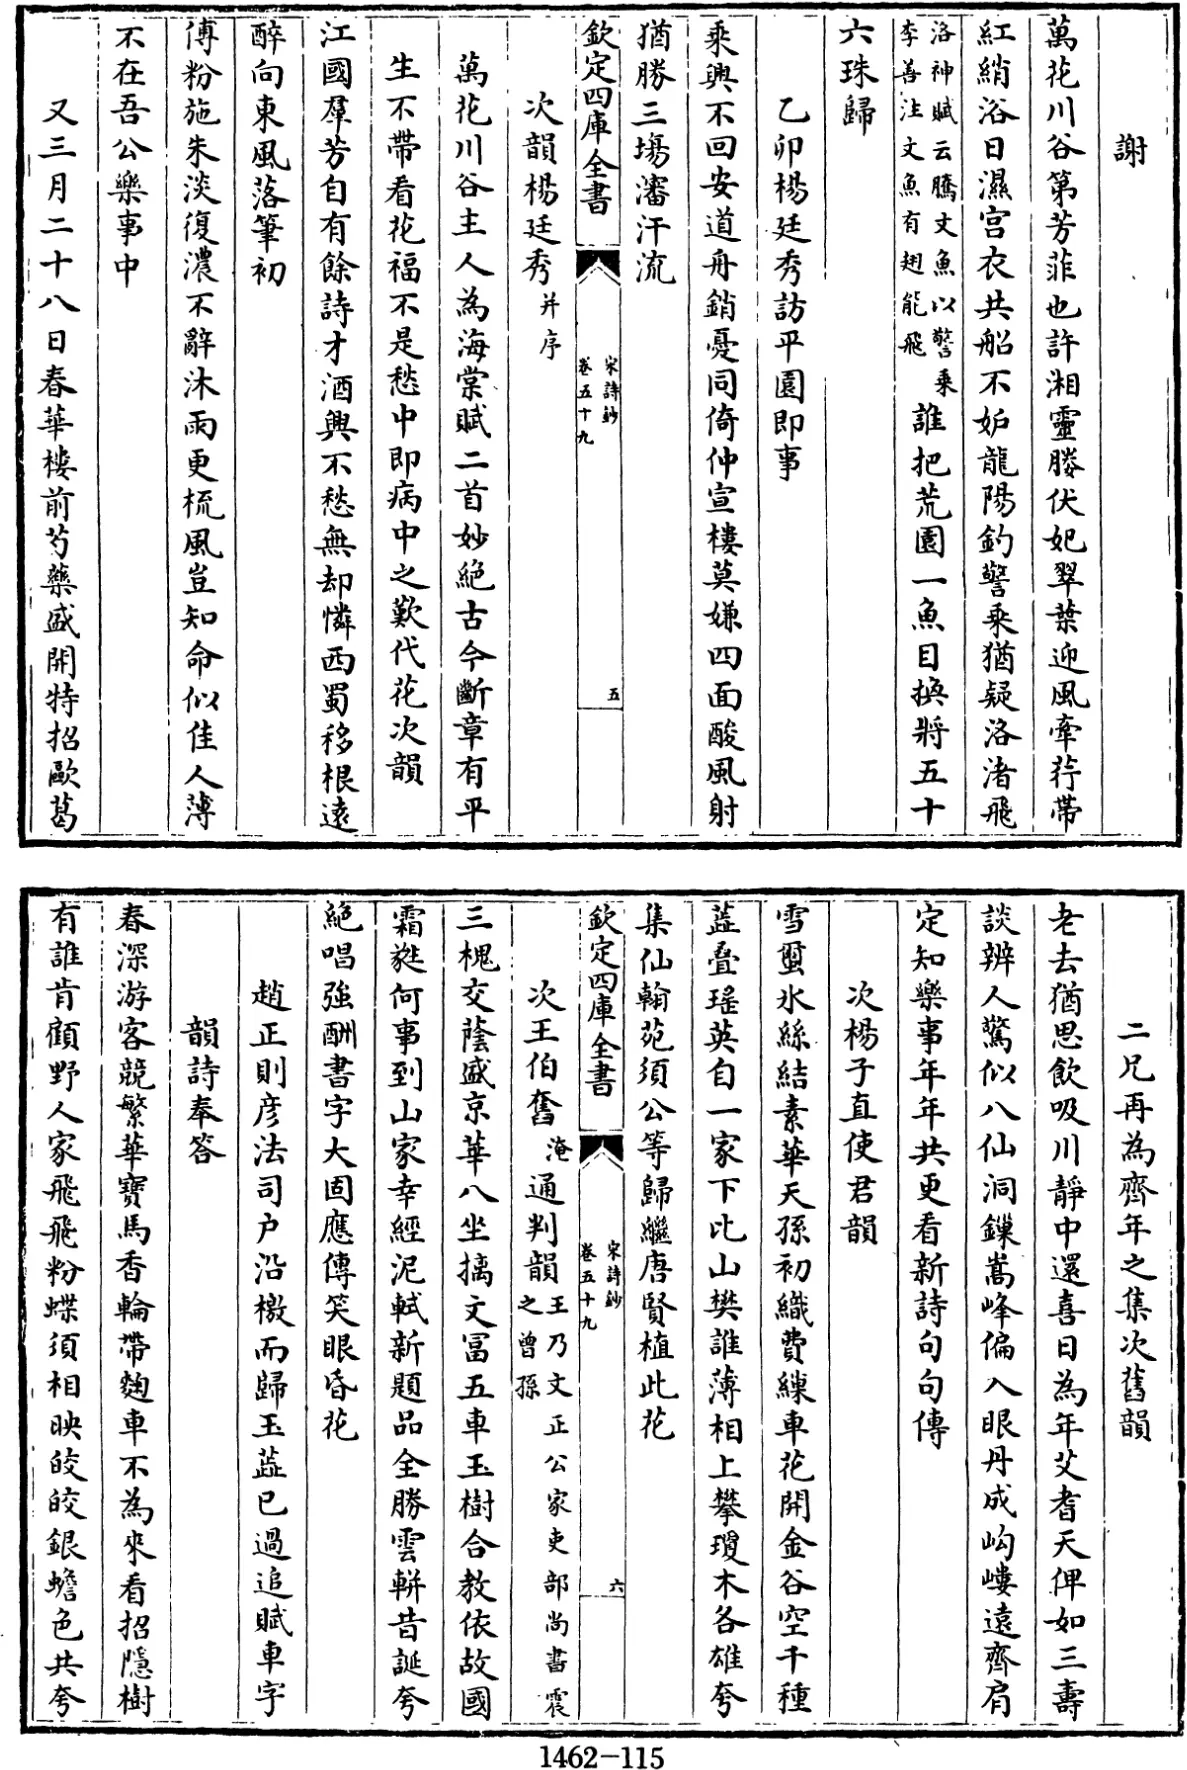 謝
萬花川谷第芳菲也許湘靈媵伏妃翠葉迎風牽荇帶
紅綃浴日濕宫衣共船不妬龍陽釣警乘猶疑洛渚飛
洛神賦云騰文魚以警乘
李善注文魚有翅能飛
誰把荒園一魚目換將五十
六珠歸
乙卯楊廷秀訪平園即事
乘興不回安道舟銷憂同倚仲宣樓莫嫌四面酸風射
猶勝三塲瀋汗流
欽定四庫全書
宋詩鈔
卷五十九
五
次韻楊廷秀并序
萬花川谷主人為海棠賦二首妙絶古今斷章有平
生不帶看花福不是愁中即病中之歎代花次韻
江國羣芳自有餘詩才酒興不愁無却憐西蜀移根遠
醉向東風落筆初
傅粉施朱淡復濃不辭沐雨更梳風豈知命似佳人薄
不在吾公樂事中
又三月二十八日春華樓前芍藥盛開特招歐葛
二兄再為齊年之集次舊韻
老去猶思飲吸川靜中還喜日為年艾耆天俾如三壽
談辨人驚似八仙洞鏁嵩峰偏入眼丹成岣嶁遠齊肩
定知樂事年年共更看新詩句句傳
次楊子直使君韻
雪蠒氷絲結素華天孫初織費繅車花開金谷空千種
蘂疊瑤英自一家下比山樊誰薄相上攀瓊木各雄夸
集仙翰苑須公等歸繼唐賢植此花
欽定四庫全書
宋詩鈔
卷五十九
六
次王伯奮淹通判韻
王乃文正公家吏部尚書震
之曾孫
三槐交蔭盛京華八坐摛文冨五車玉樹合教依故國
霜㽔何事到山家幸經泥軾新題品全勝雲軿昔誕夸
絶唱強酬書字大固應傳笑眼昏花
趙正則彦法司户沿檄而歸玉蘂已過追賦車字
韻詩奉答
春深游客競繁華寶馬香輪帶麴車不為來看招隱樹
有誰肯顧野人家飛飛粉蝶須相映皎皎銀蟾色共夸
1462-115